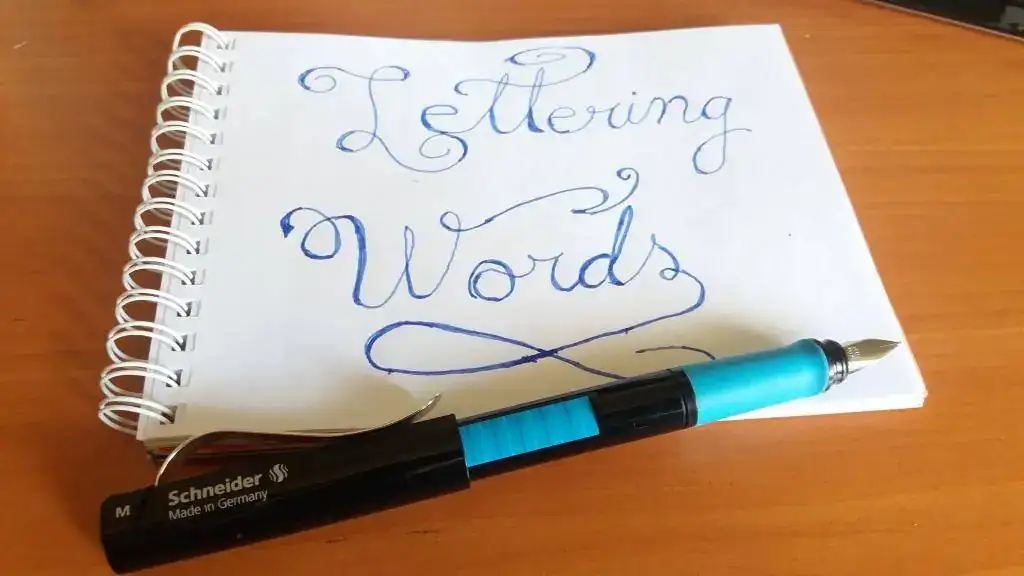 Lettering
Words
Schneider
Made in Germany
M